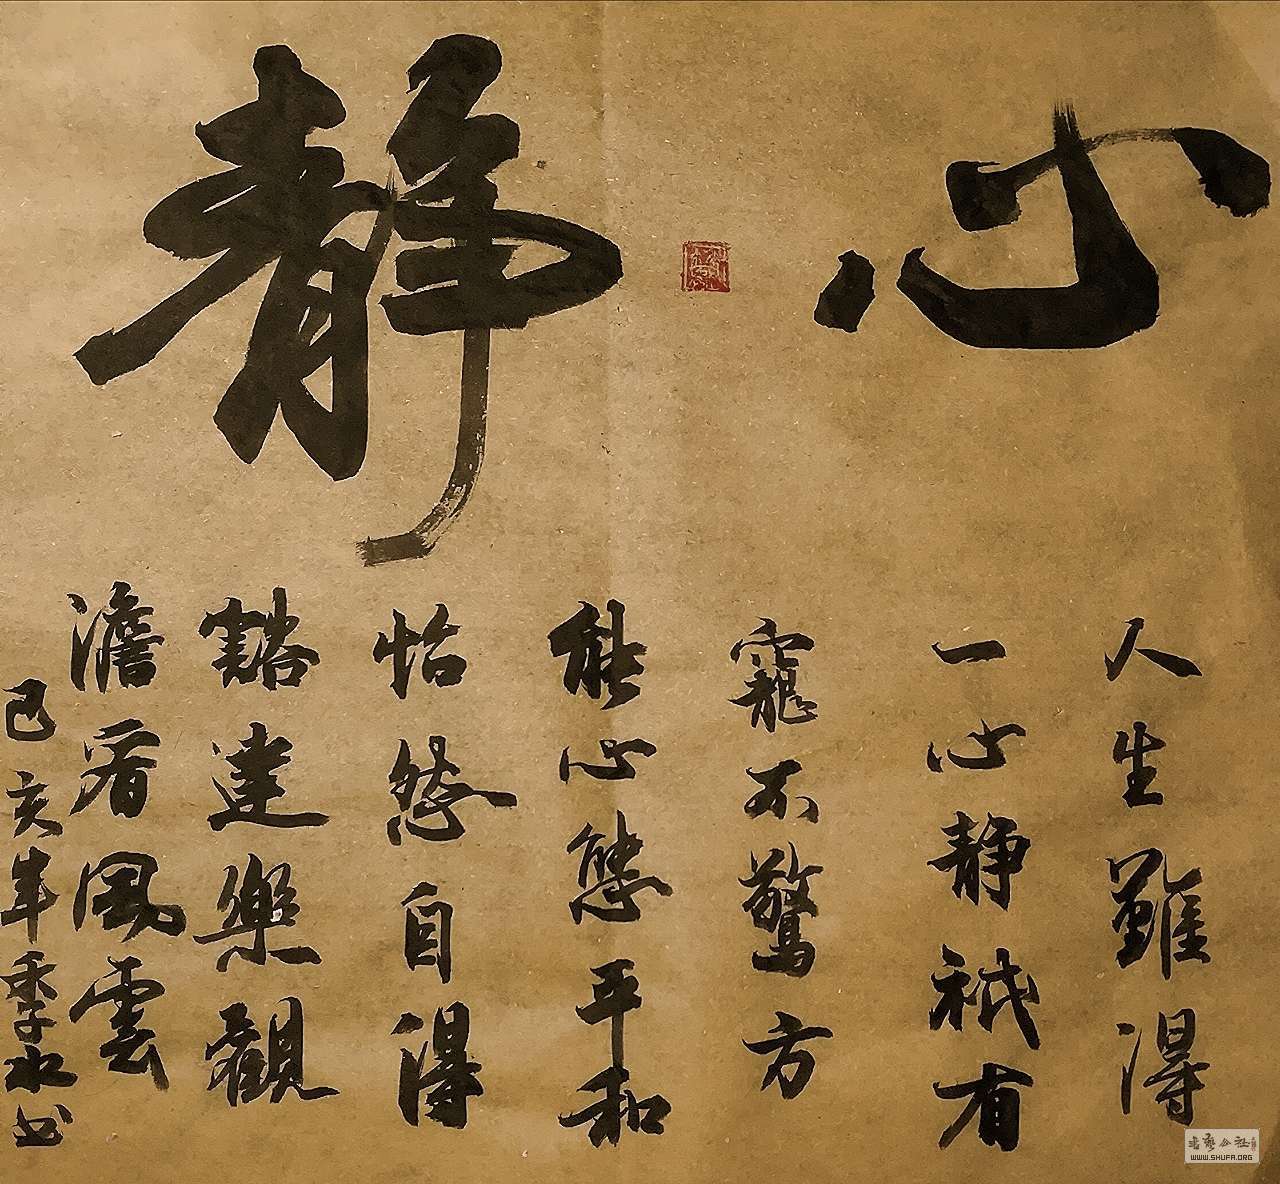 心静
人生難得
一心静祇有
寵不驚方
能心態平和
怡然自得
豁達樂觀
澹看風雲
己亥年季水书
WWW.SHUFA.ORG